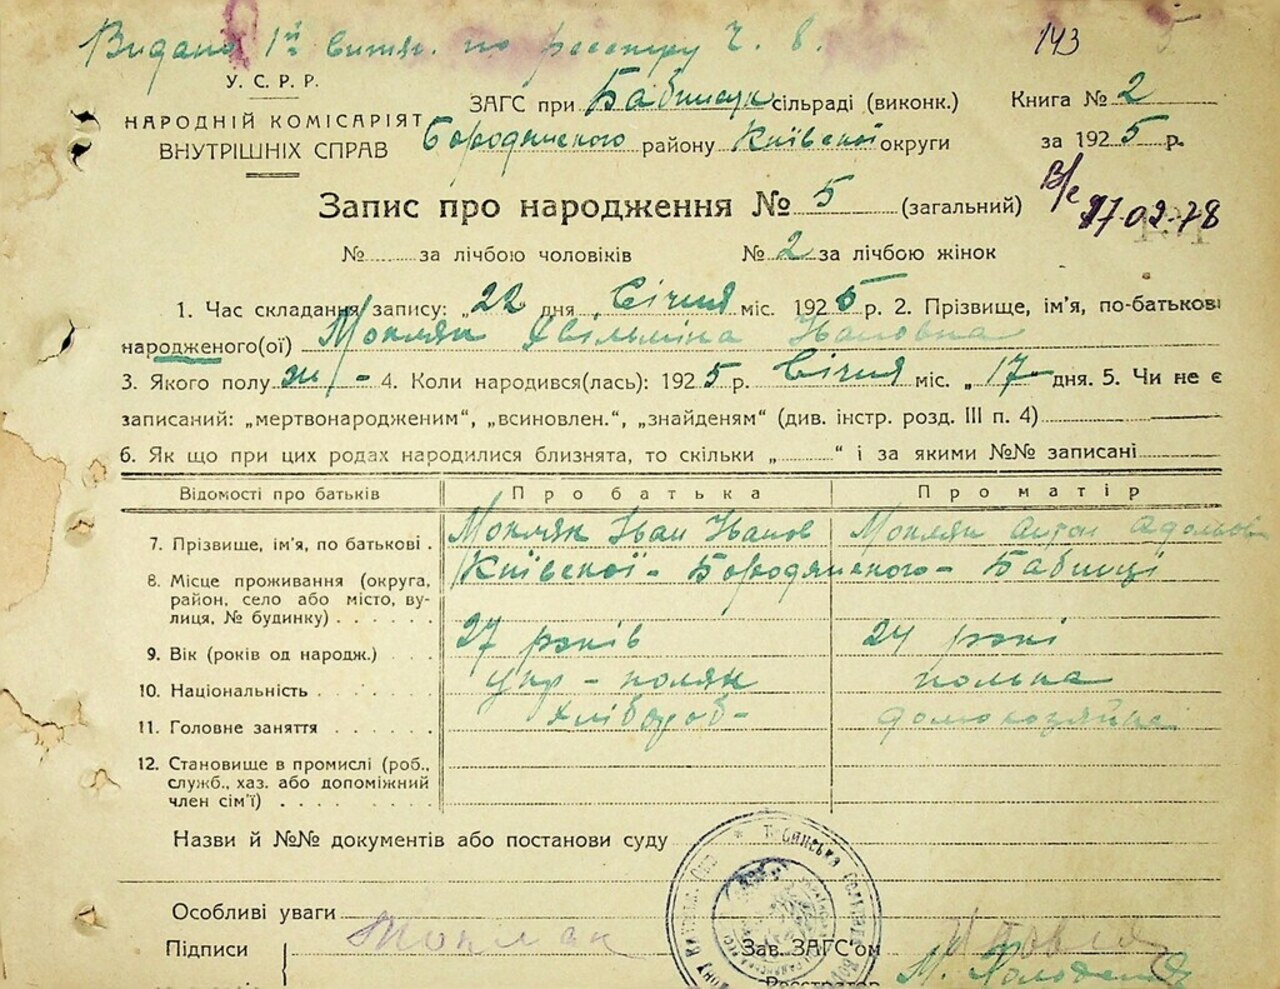 Видано 1й витяг. по реєстру Ч. 8.
143
У. С. Р. Р.
НАРОДНІЙ КОМІСАРІЯТ
ВНУТРІШНІХ СПРАВ
ЗАГС при сільраді (виконк.)
Бородянського району Київської округи
Книга № 2
за 1925 р.
17-02-78
Запис про народження № 5 (загальний)
№ за лічбою чоловіків № 2 за лічбою жінок
1. Час складання запису: „22 дня Січня міс. 1925 р. 2. Прізвище, ім'я, по-батькові
народженого(ої) Мокляк Івановна
3. Якого полу ж - 4. Коли народився(лась): 1925 р. Січня міс. „17 дня. 5. Чи не є
записаний: „мертвонародженим“, „всиновлен.“, „знайденям“ (див. інстр. розд. III п. 4)
6. Як що при цих родах народилися близнята, то скільки „ “ і за якими №№ записані
Відомості про батьків Про батька Про матір
7. Прізвище, ім'я, по батькові . Мокляк Іван Іванов Мокляк
8. Місце проживання (округа, Київської - Бородянського - Бабинці
район, село або місто, ву-
лиця, № будинку) . . . . . .
9. Вік (років од народж.) . . . 27 років 24 рокі
10. Національність . . . . . . укр - поляк полька
11. Головне заняття . . . . . . хлібороб - домохозяйка
12. Становище в промислі (роб.,
служб., хаз. або допоміжний
член сім'ї) . . . . . . . .
Назви й №№ документів або постанови суду
Особливі уваги
Підписи Мокляк Зав. ЗАГС'ом
Реєстратор М.